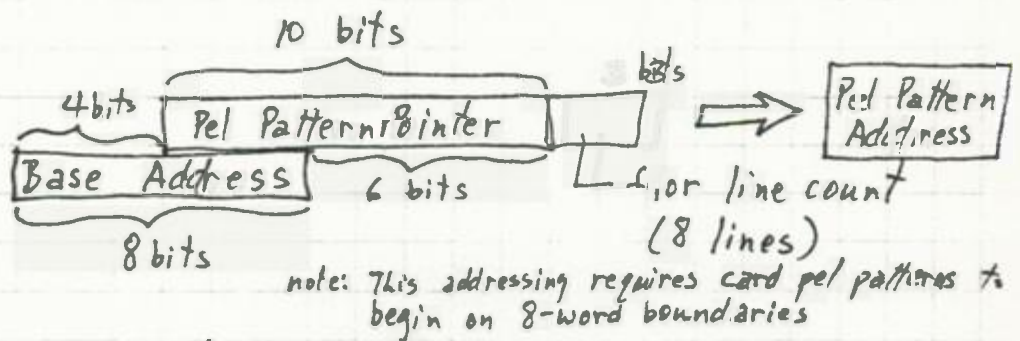 10 bits
bits
4 bits
Pel Pattern Pointer
Pel Pattern
Address
Base Address
6 bits
for line count
(8 lines)
8 bits
note: This addressing requires card pel patterns to
begin on 8-word boundaries